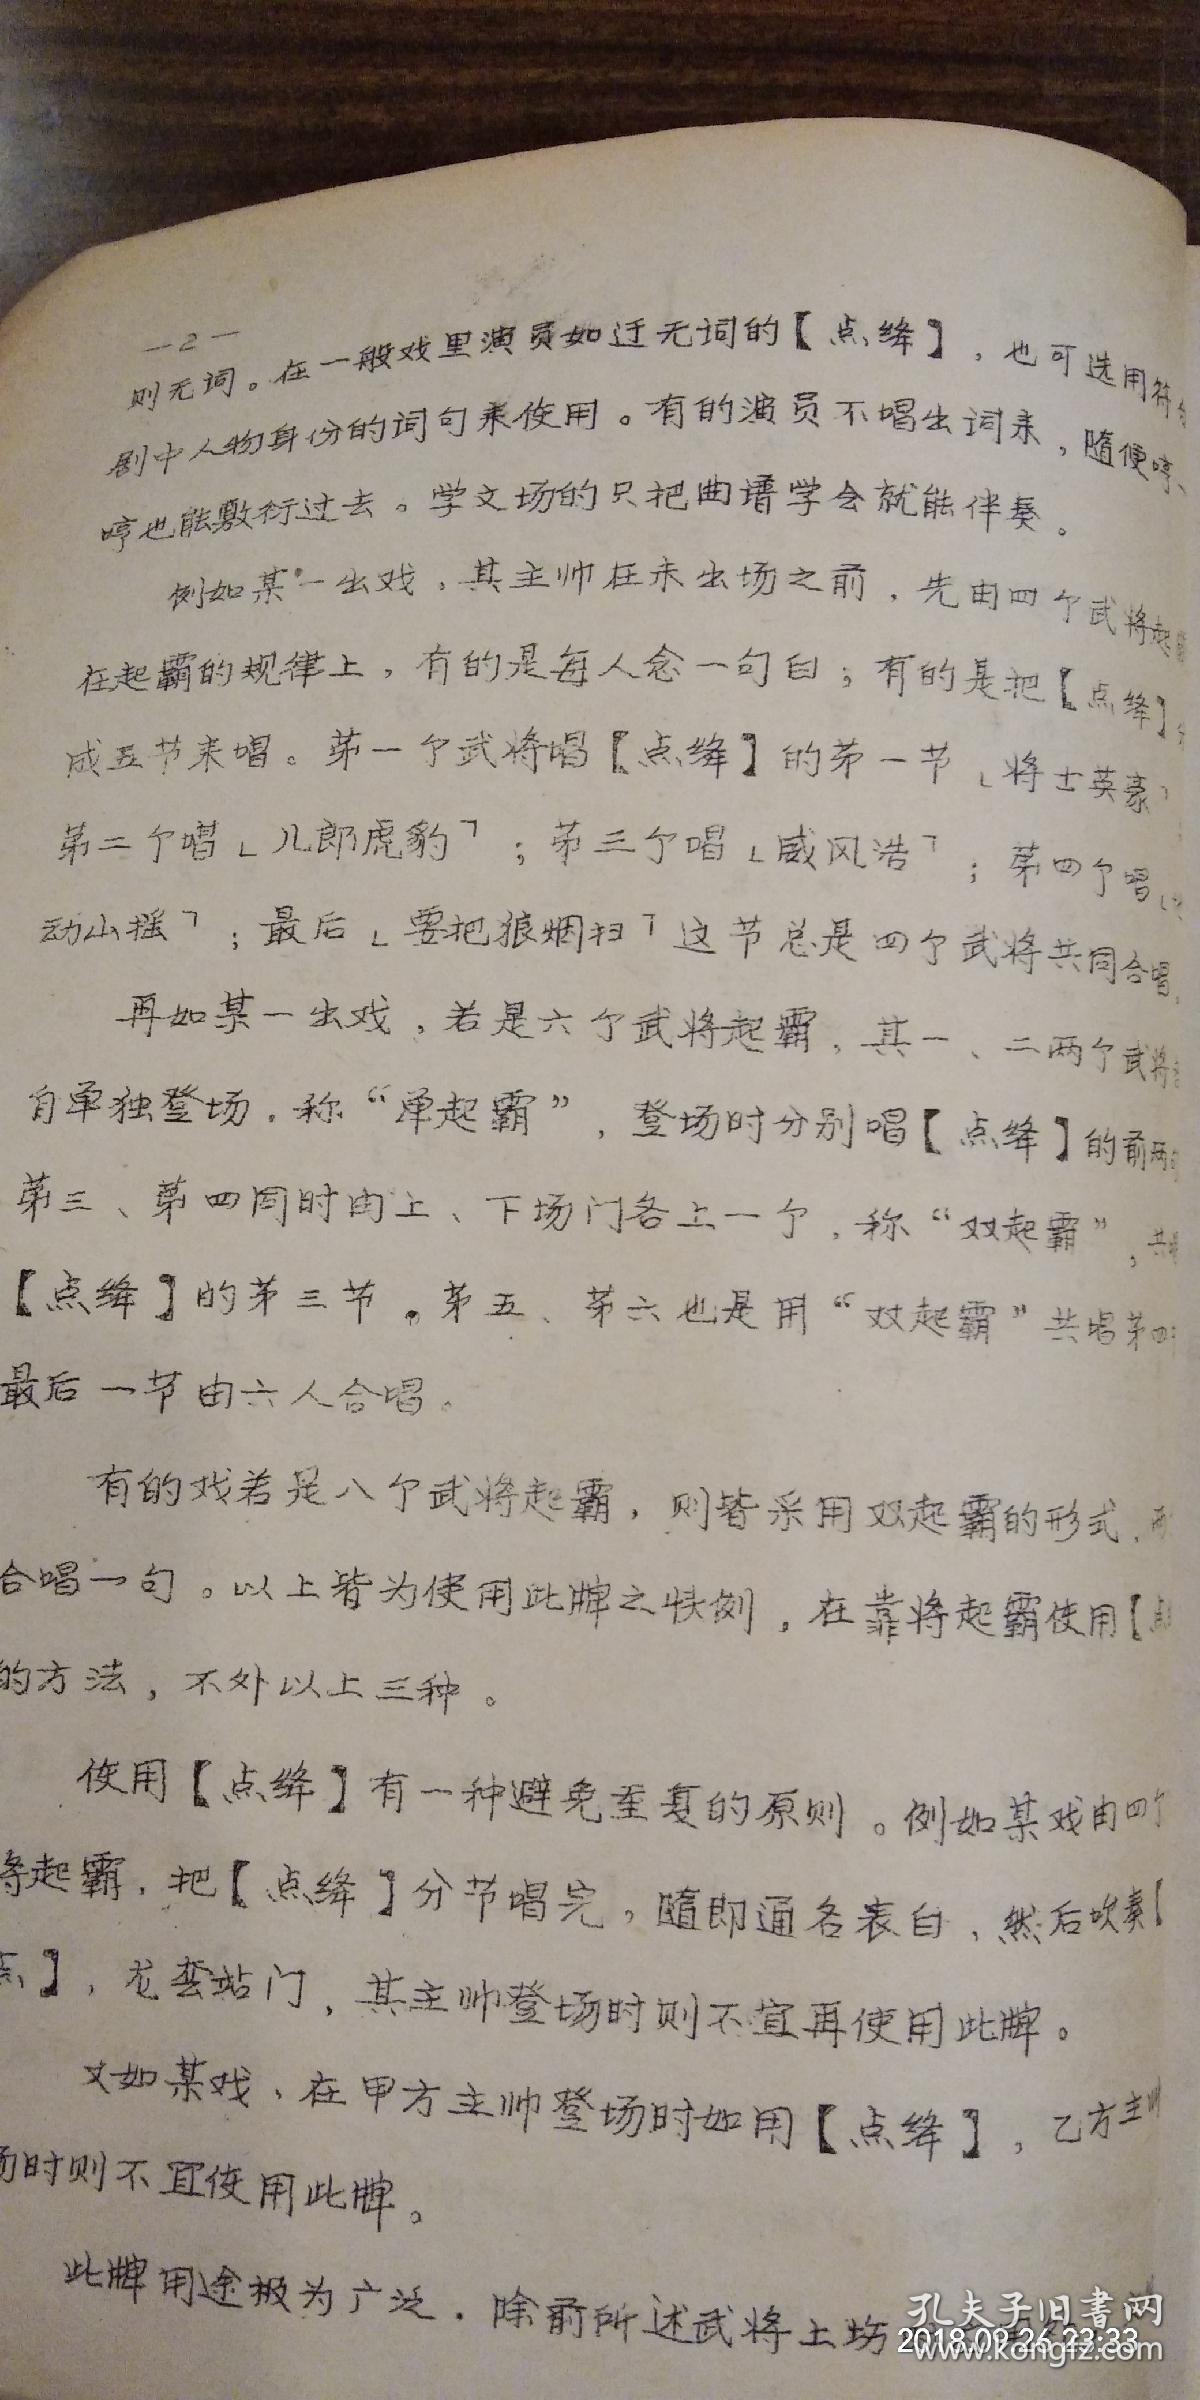 —2—
则无词。在一般戏里演员如迂无词的【点绛】，也可选用符合
剧中人物身份的词句来使用。有的演员不唱出词来，随便哼、
哼也能敷衍过去。学文场的只把曲谱学会就能伴奏。
例如某一出戏，其主帅在未出场之前，先由四个武将起霸
在起霸的规律上，有的是每人念一句白；有的是把【点绛】分
成五节来唱。第一个武将唱【点绛】的第一节「将士英豪」
第二个唱「儿郎虎豹」；第三个唱「威风浩」；第四个唱「
动山摇」；最后「要把狼烟扫」这节总是四个武将共同合唱。
再如某一出戏，若是六个武将起霸，其一、二两个武将各
自单独登场，称“单起霸”，登场时分别唱【点绛】的前两
第三、第四同时由上、下场门各上一个，称“双起霸”，共唱
【点绛】的第三节。第五、第六也是用“双起霸”共唱第四
最后一节由六人合唱。
有的戏若是八个武将起霸，则皆采用双起霸的形式，
合唱一句。以上皆为使用此牌之惯例，在靠将起霸使用【点
的方法，不外以上三种。
使用【点绛】有一种避免重复的原则。例如某戏由四个
将起霸，把【点绛】分节唱完，随即通名表白，然后吹奏【
点】，龙套站门，其主帅登场时则不宜再使用此牌。
又如某戏，在甲方主帅登场时如用【点绛】，乙方主帅
场时则不宜使用此牌。
此牌用途极为广泛，除前所述武将土坊
孔夫子旧书网
2018.09.26 23:33
www.kongfz.com